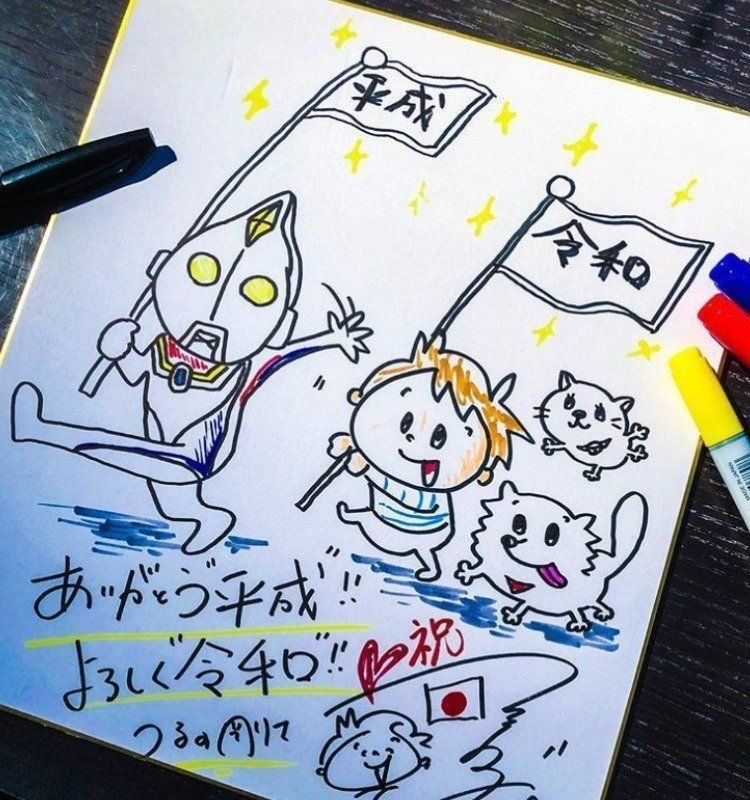 平成
令和
ありがとう平成!!
よろしく令和!!
祝
つるの剛士
MADE IN JAPAN